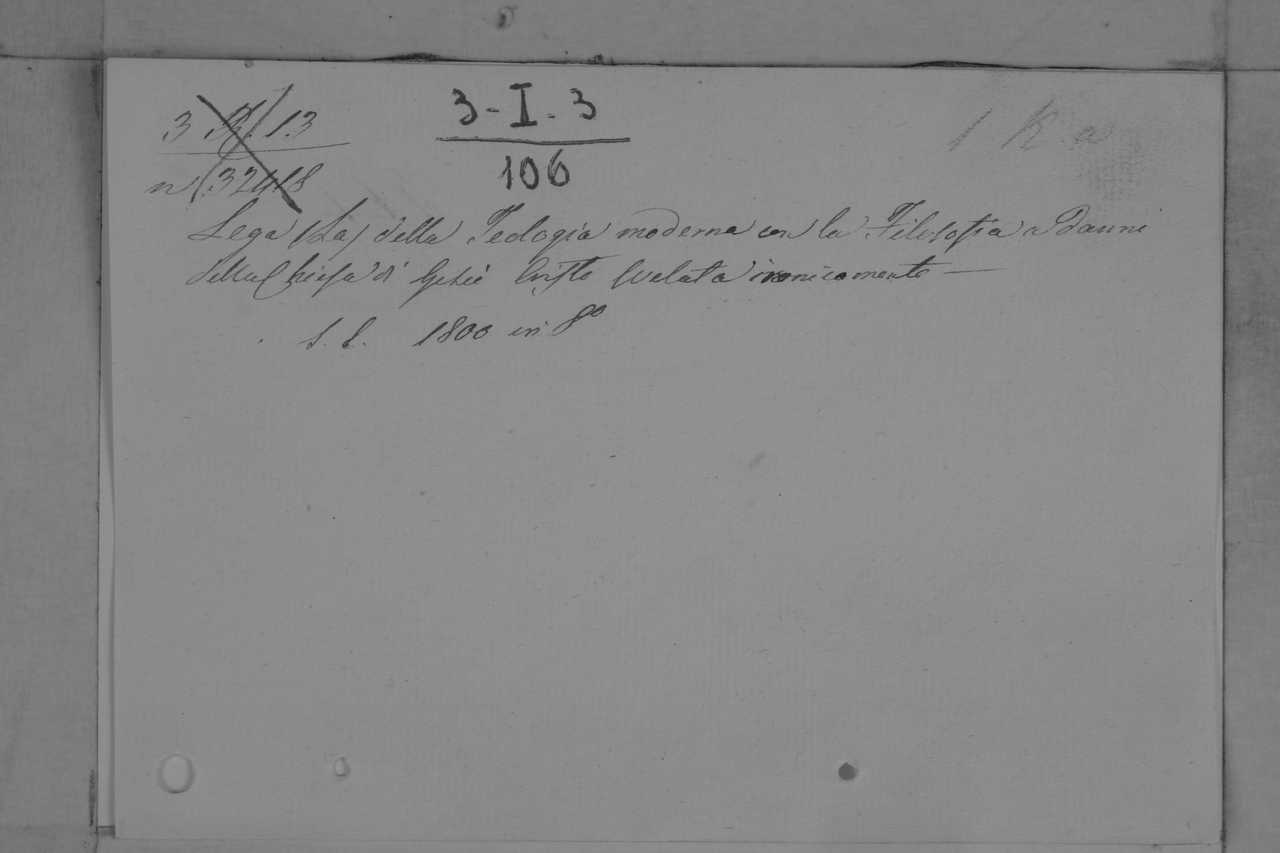 3-I-3
106
1 K a
3 13
n 32418
Lega (La) della Teologia moderna con la Filosofia a Danni
della Chiesa di Gesù Cristo svelata ironicamente —
S. l. 1800 in 8º